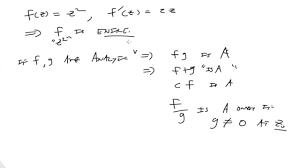 f(z) = z², f'(z) = 2z
⇒ f is ENTIRE.
"z²"
If f, g are Analytic ⇒ fg is A
⇒ f+g "is A"
cf is A
f/g is A
g ≠ 0 at z₀